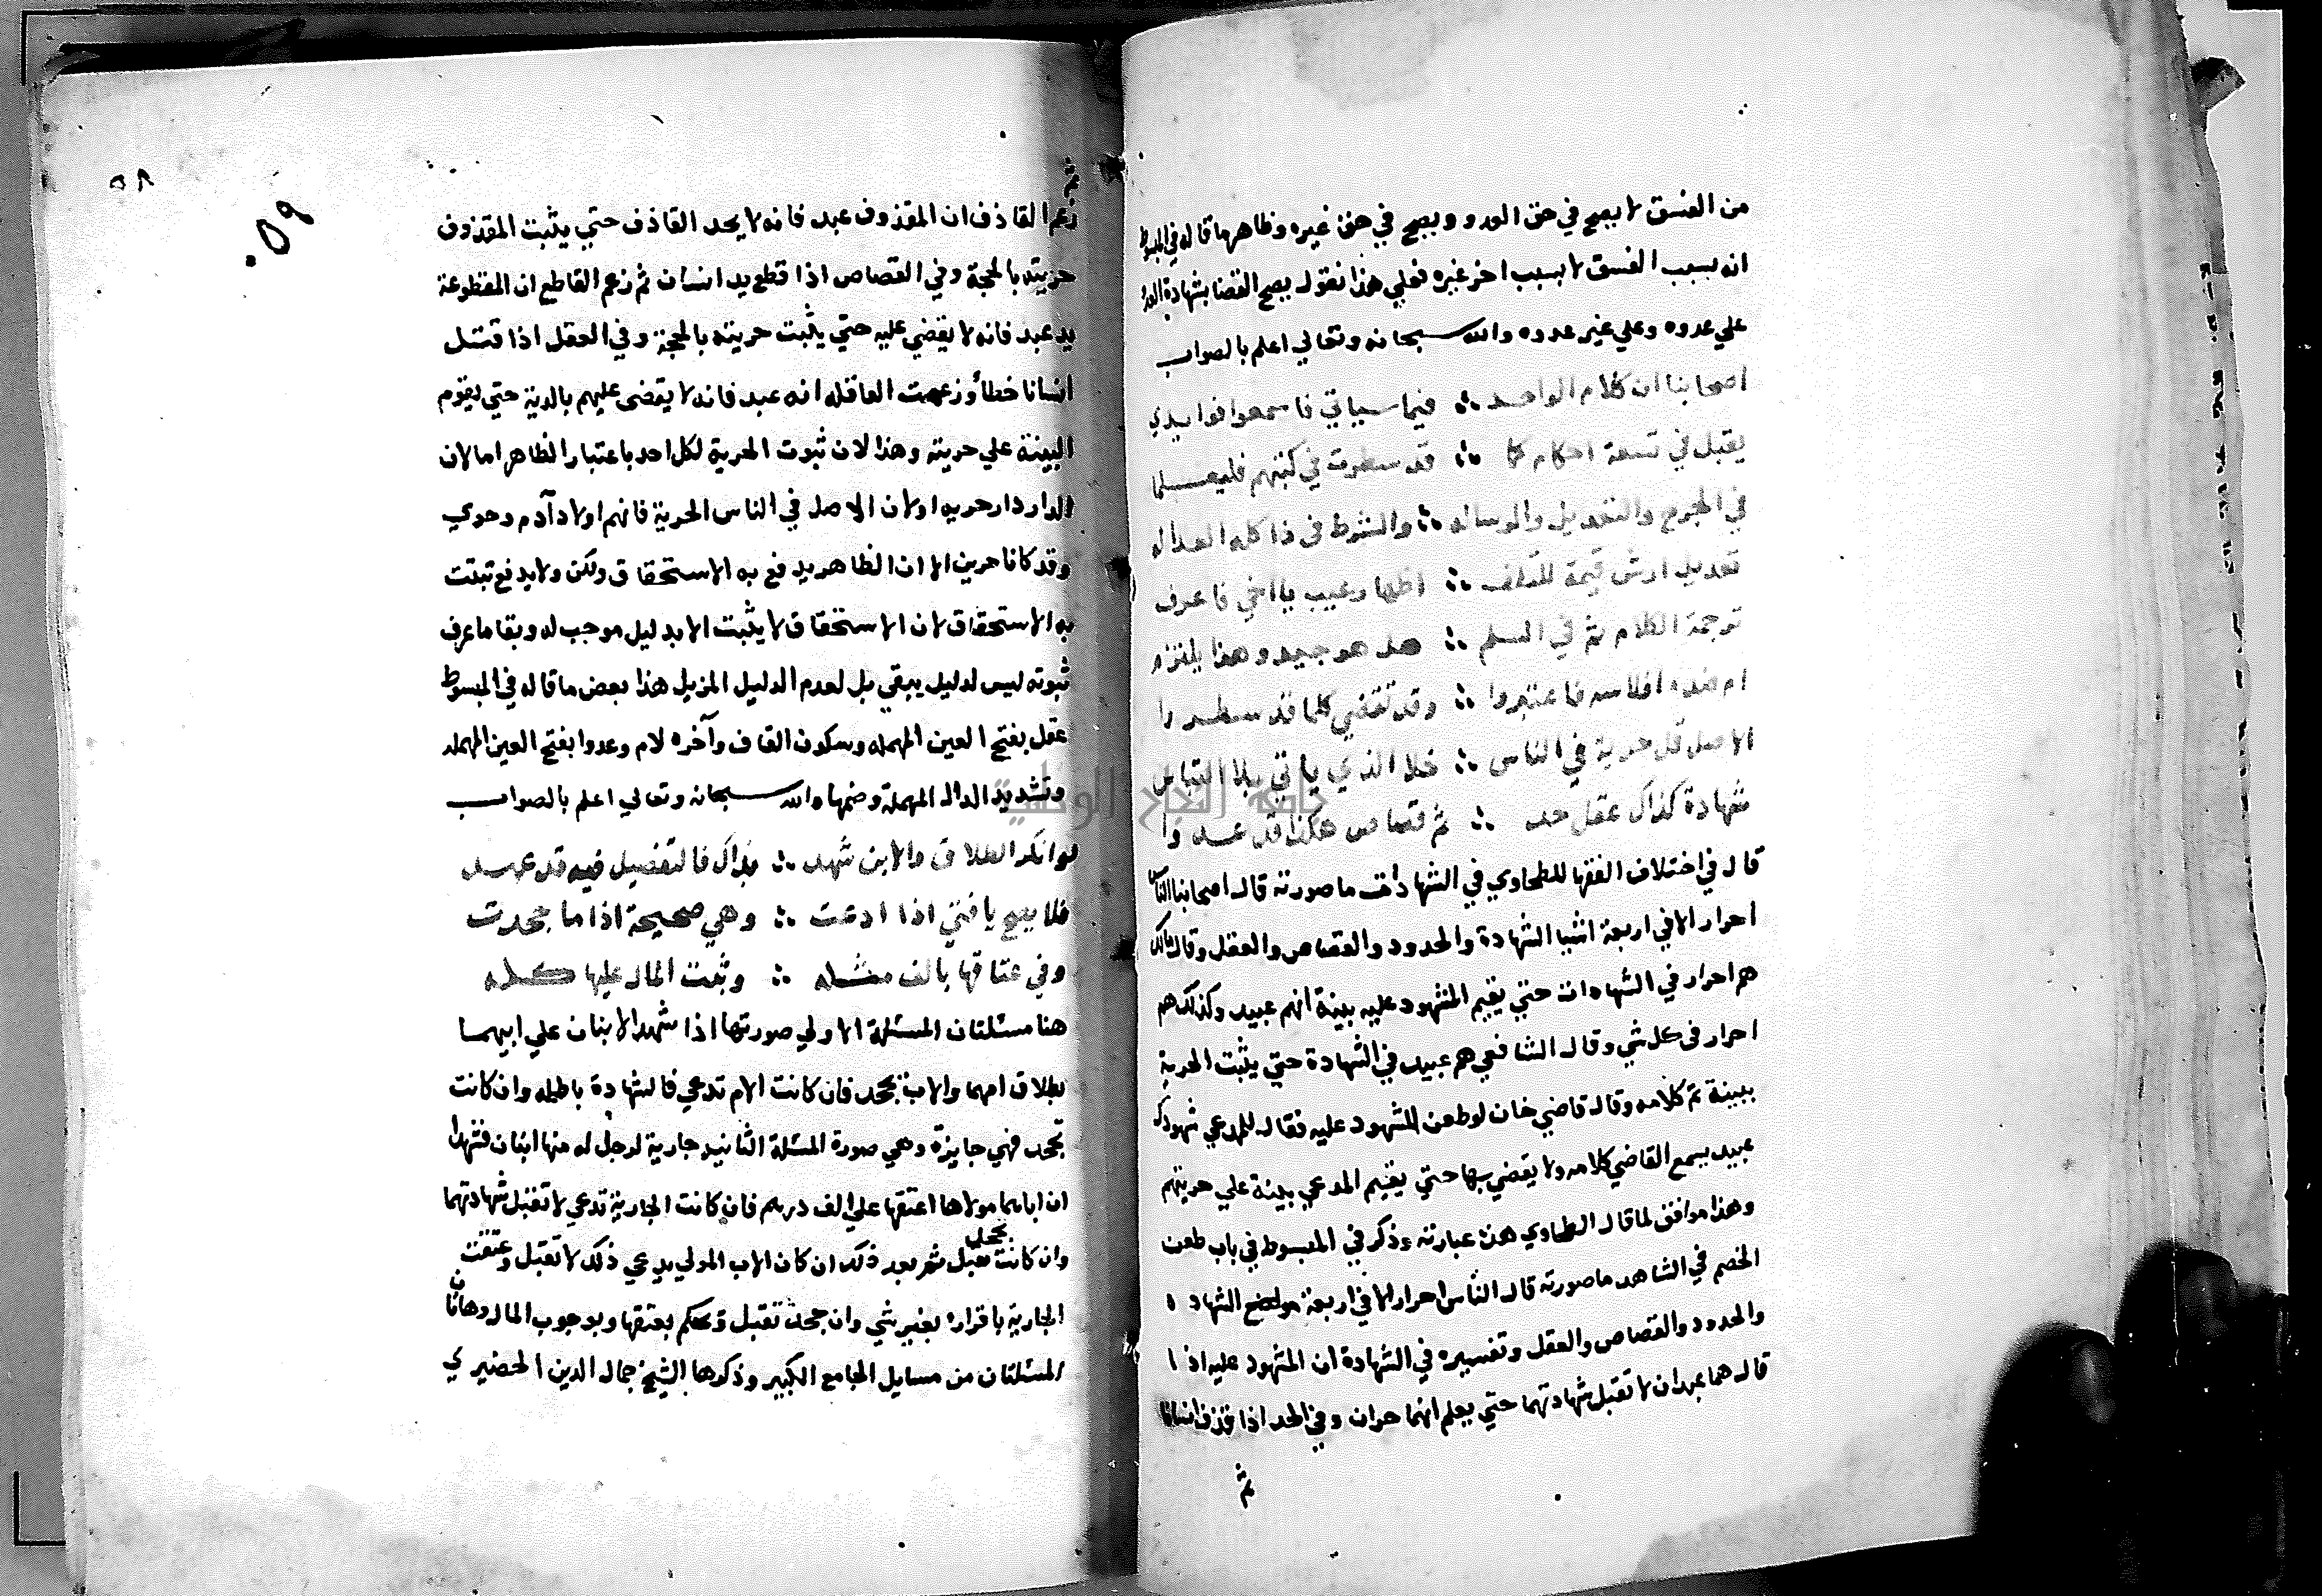 من الفسق لا يصح في حق العدو ويصح في حق غيره وظاهر ما قاله في المبسوط
انه بسبب الفسق لا بسبب اخر غيره فعلي هذا نقول يصح القضا بشهادة العدو
علي عدوه وعلي غير عدوه والله سبحانه وتعالي اعلم بالصواب
اصحابنا ان كلام الواحد ∴ فيما سياتي فاسمعوا فوايدي
يقبل في تسعة احكام كما ∴ قد سطرت في كتبهم فليعلما
في الجرح والتعديل والرساله ∴ والشرط في ذا كله العداله
تعديل ارش قيمة للمتلف ∴ اظهار عيب يا اخي فاعرف
ترجمة الكلام ثم في السلم ∴ هل هو جيد وهذا يلتزم
افلاسه فاعتبروا ∴ وقد تقضي كلما قد سطروا
الاصل قل حرية في الناس ∴ خلا الذي ياتي بلا التباس
شهادة كذاك عقل حد ∴ ثم قصاص هكذا قد عدوا
قال في اختلاف الفقها للطحاوي في الشهادات ما صورته قال اصحابنا الناس
احرار الا في اربعة اشيا الشهادة والحدود والقصاص والعقل وقال مالك
هم احرار في الشهادات حتي يقيم المشهود عليه بينة انهم عبيد وكذلك هم
احرار في كل شي وقال الشافعي هم عبيد في الشهادة حتي يثبت الحرية
ببينة تم كلامه وقال قاضي خان لو طعن المشهود عليه فقال للمدعي شهودك
عبيد يسمع القاضي كلامه ولا يقضي بها حتي يقيم المدعي بينة علي حريتهم
وهذا موافق لما قال الطحاوي هذه عبارته وذكر في المبسوط في باب طعن
الخصم في الشاهد ما صورته قال الناس احرار الا في اربعة مواضع الشهادة
والحدود والقصاص والعقل وتفسيره في الشهادة ان المشهود عليه اذا
قال هما عبدان لا تقبل شهادتهما حتي يعلم انهما حران وفي الحد اذا قذف انسانا
ثم
٥٨
٥٩
ثم
زعم القاذف ان المقذوف عبد فانه لا يحد القاذف حتي يثبت المقذوف
حريته بالحجة وفي القصاص اذا قطع يد انسان ثم زعم القاطع ان المقطوعة
يد عبد فانه لا يقضي عليه حتي يثبت حريته بالحجة وفي العقل اذا قتل
انسانا خطأ وزعمت العاقله انه عبد فانه لا يقضي عليهم بالدية حتي يقوم
البينة علي حريته وهذا لان ثبوت الحرية لكل احد باعتبار الظاهر اما لان
الدار دار حريه او لان الاصل في الناس الحرية فانهم اولاد آدم وحوي
وقد كانا حرين الا ان الظاهر يدفع به الاستحقاق ولكن ولا يدفع تبثت
به الاستحقاق لان الاستحقاق لا يثبت الا بدليل موجب له وبقا ما عرف
ثبوته ليس لدليل يبقي بل لعدم الدليل المزيل هذا بعض ما قاله في المبسوط
عقل بفتح العين المهمله وسكون القاف وآخره لام وعدوا بفتح العين المهمله
وتشديد الدال المهملة وضمها والله سبحانه وتعالي اعلم بالصواب
لو انكر الطلاق والابن شهد ∴ بذاك فالتفصيل فيه قد عهد
فلا يصح يا فتي اذا ادعت ∴ وهي صحيحة اذا ما جحدت
وفي عتاقها بالف مثله ∴ وثبت المال عليها كله
هنا مسئلتان المسئلة الاولي صورتها اذا شهد الابنان علي ابيهما
بطلاق امهما والاب يجحد فان كانت الام تدعي فالشهادة باطله وان كانت
تجحد فهي جايزة وهي صورة المسئلة الثانيه جارية لرجل له منها ابنان فشهدا
ان اباهما مولاها اعتقها علي الف درهم فان كانت الجارية تدعي لا تقبل شهادتهما
وان كانت تجحد تقبل ثم بعد ذلك ان كان الاب المولي يدعي ذلك لا تقبل وعتقت
الجارية باقراره بغير شي وان جحد تقبل وتحكم بعتقها وبوجوب المال وهاتان
المسئلتان من مسايل الجامع الكبير وذكرها الشيخ جمال الدين الحضيري
جامعة النجاح الوطنية